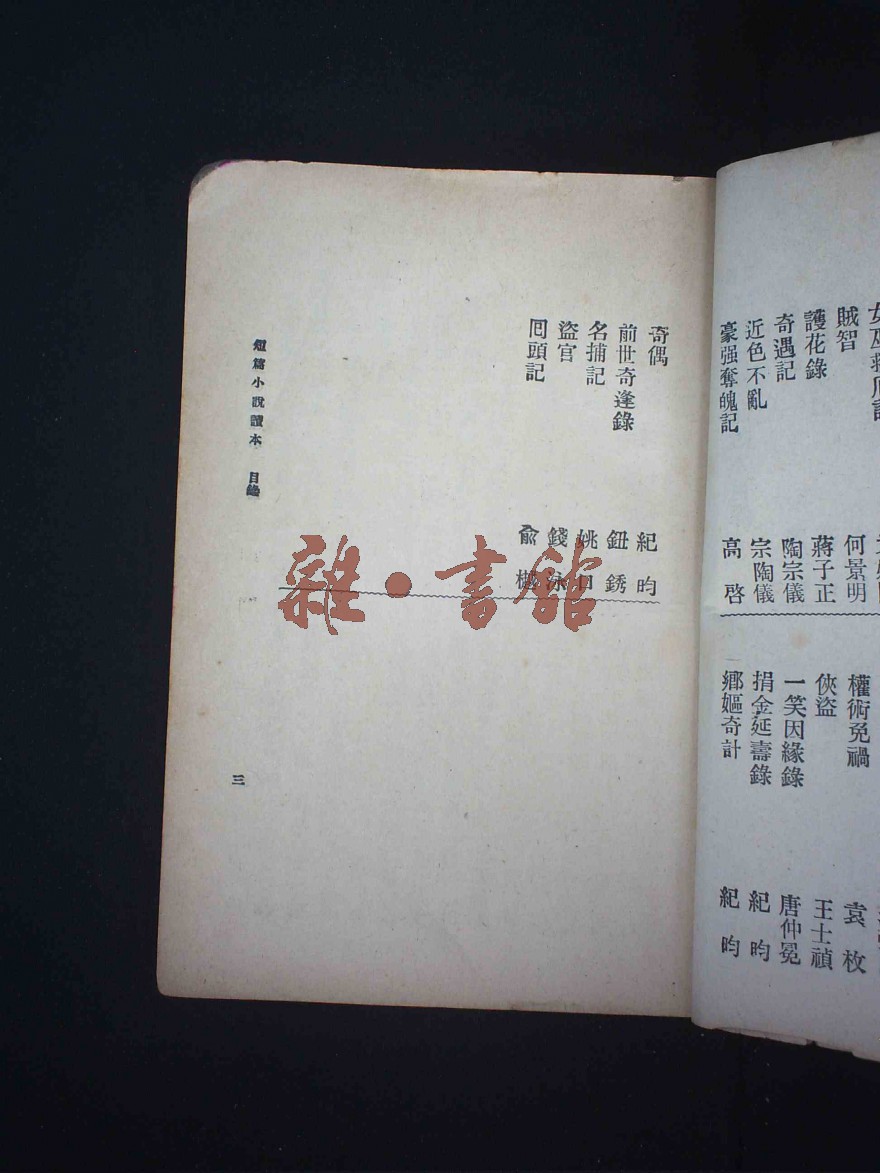 賊智
何景明
護花錄
蔣子正
奇遇記
陶宗儀
近色不亂
宗陶儀
豪强奪魄記
高啓
袁枚
權術免禍
俠盜
王士禎
一笑因緣錄
唐仲冕
捐金延壽錄
紀昀
鄉嫗奇計
紀昀
奇偶
紀昀
前世奇逢錄
鈕銹
名捕記
姚
盜官
錢泳
囘頭記
俞樾
短篇小說讀本 目錄
三
雜・書館